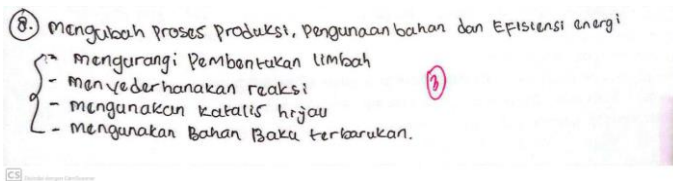 8. mengubah proses produksi, pengunaan bahan dan Efisiensi energi
- mengurangi Pembentukan limbah
- menyederhanakan reaksi
- mengunakan katalis hijau
- mengunakan Bahan Baku terbarukan.
3
CS